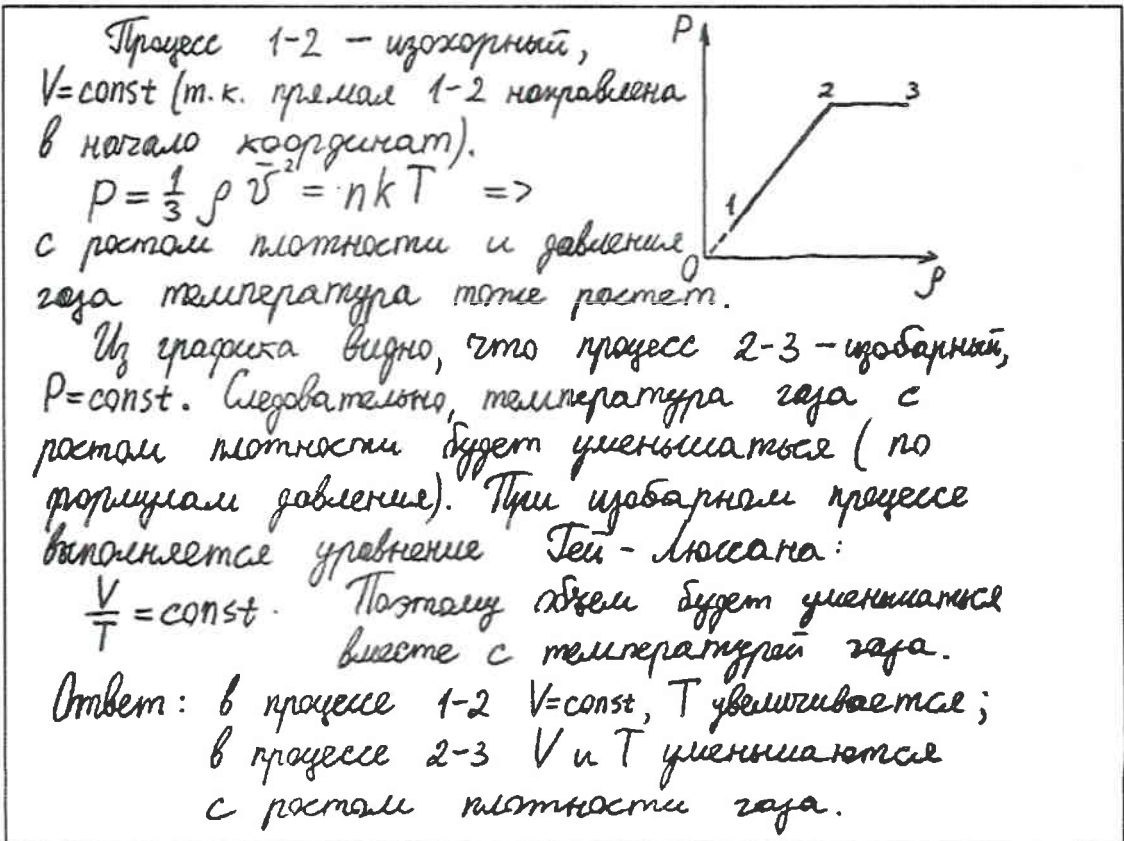 Процесс 1-2 – изохорный,
V=const (т.к. прямая 1-2 направлена
в начало координат).
P = 1/3 ρ v̄² = nkT =>
с ростом плотности и давления
газа температура тоже растет.
Из графика видно, что процесс 2-3 – изобарный,
P=const. Следовательно, температура газа с
ростом плотности будет уменьшаться (по
формулам давления). При изобарном процессе
выполняется уравнение Гей-Люссана:
V/T = const. Поэтому объем будет уменьшаться
вместе с температурой газа.
Ответ: в процессе 1-2 V=const, T увеличивается;
в процессе 2-3 V и T уменьшаются
с ростом плотности газа.
P
2 3
1
0
ρ